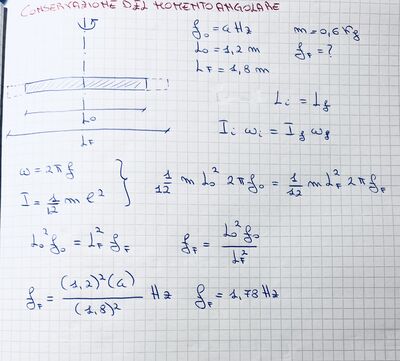 CONSERVAZIONE DEL MOMENTO ANGOLARE
f₀ = 4 Hz m = 0,6 Kg
L₀ = 1,2 m f_F = ?
L_F = 1,8 m
L₀
L_F
L_i = L_f
I_i ω_i = I_f ω_f
ω = 2πf
I = 1/12 m l²
1/12 m L₀² 2π f₀ = 1/12 m L_F² 2π f_F
L₀² f₀ = L_F² f_F f_F = L₀² f₀ / L_F²
f_F = (1,2)² (4) / (1,8)² Hz f_F = 1,78 Hz